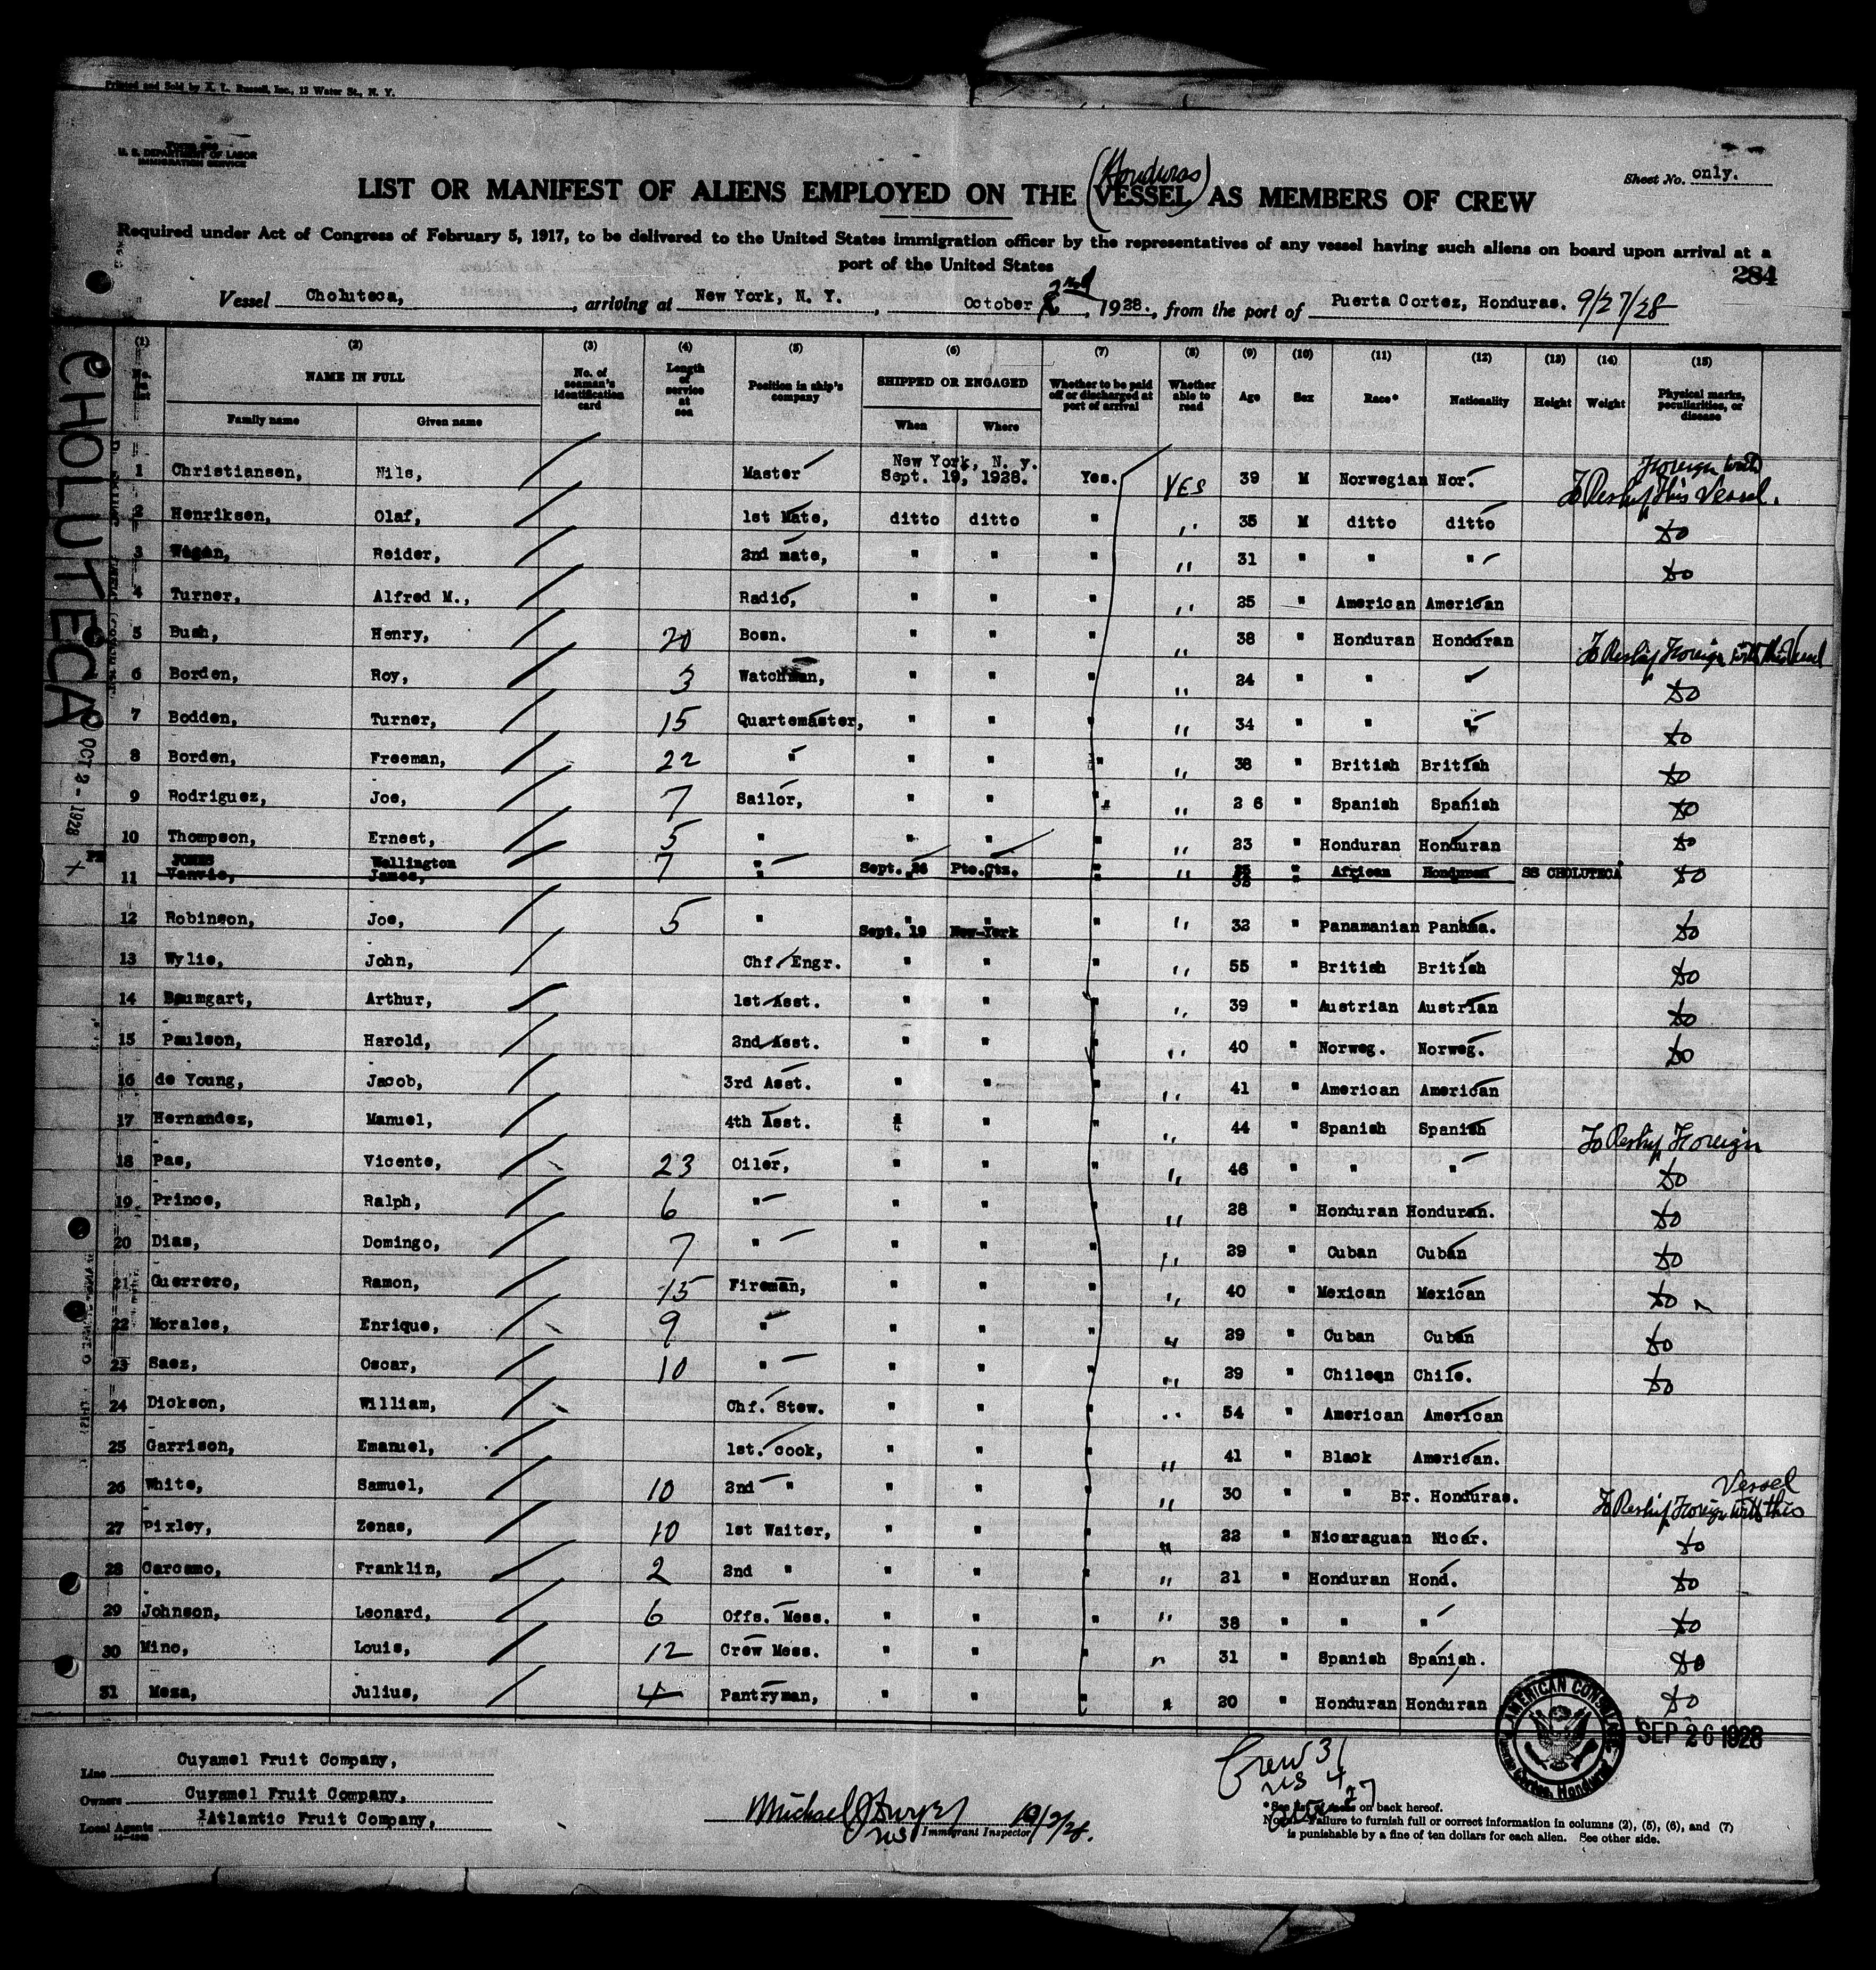 Printed and Sold by X. L. Russell, Inc., 13 Water St., N. Y.
U. S. DEPARTMENT OF LABOR
IMMIGRATION SERVICE
Sheet No. only.
(Honduras)
LIST OR MANIFEST OF ALIENS EMPLOYED ON THE VESSEL AS MEMBERS OF CREW
Required under Act of Congress of February 5, 1917, to be delivered to the United States immigration officer by the representatives of any vessel having such aliens on board upon arrival at a
port of the United States
284
Vessel Choluteca, , arriving at New York, N. Y. , October 2nd , 1928. , from the port of Puerta Cortez, Honduras. 9/27/28
CHOLUTECA
OCT 2 - 1928
(1) (2) (3) (4) (5) (6) (7) (8) (9) (10) (11) (12) (13) (14) (15)
No. on list NAME IN FULL Family name Given name No. of seaman's identification card Length of service at sea Position in ship's company SHIPPED OR ENGAGED When Where Whether to be paid off or discharged at port of arrival Whether able to read Age Sex Race* Nationality Height Weight Physical marks, peculiarities, or disease
1 Christiansen, Nils, Master New York, N. Y. Sept. 19, 1928. Yes. YES 39 M Norwegian Nor. To Reship Foreign with this Vessel.
2 Henriksen, Olaf, 1st Mate, ditto ditto " " 35 M ditto ditto do
3 Wagan, Reider, 2nd mate, " " " " 31 " " " do
4 Turner, Alfred M., Radio, " " " " 25 " American American
5 Bush, Henry, 20 Bosn. " " " " 38 " Honduran Honduran To Reship Foreign with this Vessel
6 Borden, Roy, 3 Watchman, " " " " 24 " " " do
7 Bodden, Turner, 15 Quartemaster, " " " " 34 " " " do
8 Borden, Freeman, 22 " " " " " 38 " British British do
9 Rodriguez, Joe, 7 Sailor, " " " " 2 6 " Spanish Spanish do
10 Thompson, Ernest, 5 " " " " " 23 " Honduran Honduran do
JONES Wellington
11 Vanvie, James, 7 " Sept. 26 Pto.Ctz. " " 32 " African Honduran SS CHOLUTECA do
12 Robinson, Joe, 5 " " " " " 32 " Panamanian Panama. do
Sept. 19 New-York
13 Wylie, John, Chf. Engr. " " " " 55 " British British do
14 Baumgart, Arthur, 1st Asst. " " " " 39 " Austrian Austrian do
15 Paulson, Harold, 2nd Asst. " " " " 40 " Norweg. Norweg. do
16 de Young, Jacob, 3rd Asst. " " " " 41 " American American
17 Hernandez, Manuel, 4th Asst. " " " " 44 " Spanish Spanish To Reship Foreign
18 Pas, Vicente, 23 Oiler, " " " " 46 " " " do
19 Prince, Ralph, 6 " " " " " 28 " Honduran Honduran. do
20 Dias, Domingo, 7 " " " " " 29 " Cuban Cuban do
21 Guerrero, Ramon, 15 Fireman, " " " " 40 " Mexican Mexican do
22 Morales, Enrique, 9 " " " " " 29 " Cuban Cuban do
23 Saez, Oscar, 10 " " " " " 29 " Chilean Chile. do
24 Dickson, William, Chf. Stew. " " " " 54 " American American
25 Garrison, Emanuel, 1st. cook, " " " " 41 " Black American.
26 White, Samuel, 10 2nd " " " " " 30 " " Br. Honduras. To Reship Foreign with this Vessel
27 Pixley, Zenas, 10 1st Waiter, " " " " 22 " Nicaraguan Nicar. do
28 Carcamo, Franklin, 2 2nd " " " " " 21 " Honduran Hond. do
29 Johnson, Leonard, 6 Offs. Mess. " " " " 38 " " " do
30 Mino, Louis, 12 Crew Mess. " " " " 31 " Spanish Spanish. do
31 Meza, Julius, 4 Pantryman, " " " " 20 " Honduran Honduran do
AMERICAN CONSULATE Puerto Cortes, Honduras
SEP 26 1928
Line Cuyamel Fruit Company,
Owners Cuyamel Fruit Company,
Local Agents Atlantic Fruit Company,
Crew 31
US 4
27
10/2/28.
Immigrant Inspector
* See list of races on back hereof.
Note.—Failure to furnish full or correct information in columns (2), (5), (6), and (7)
is punishable by a fine of ten dollars for each alien. See other side.